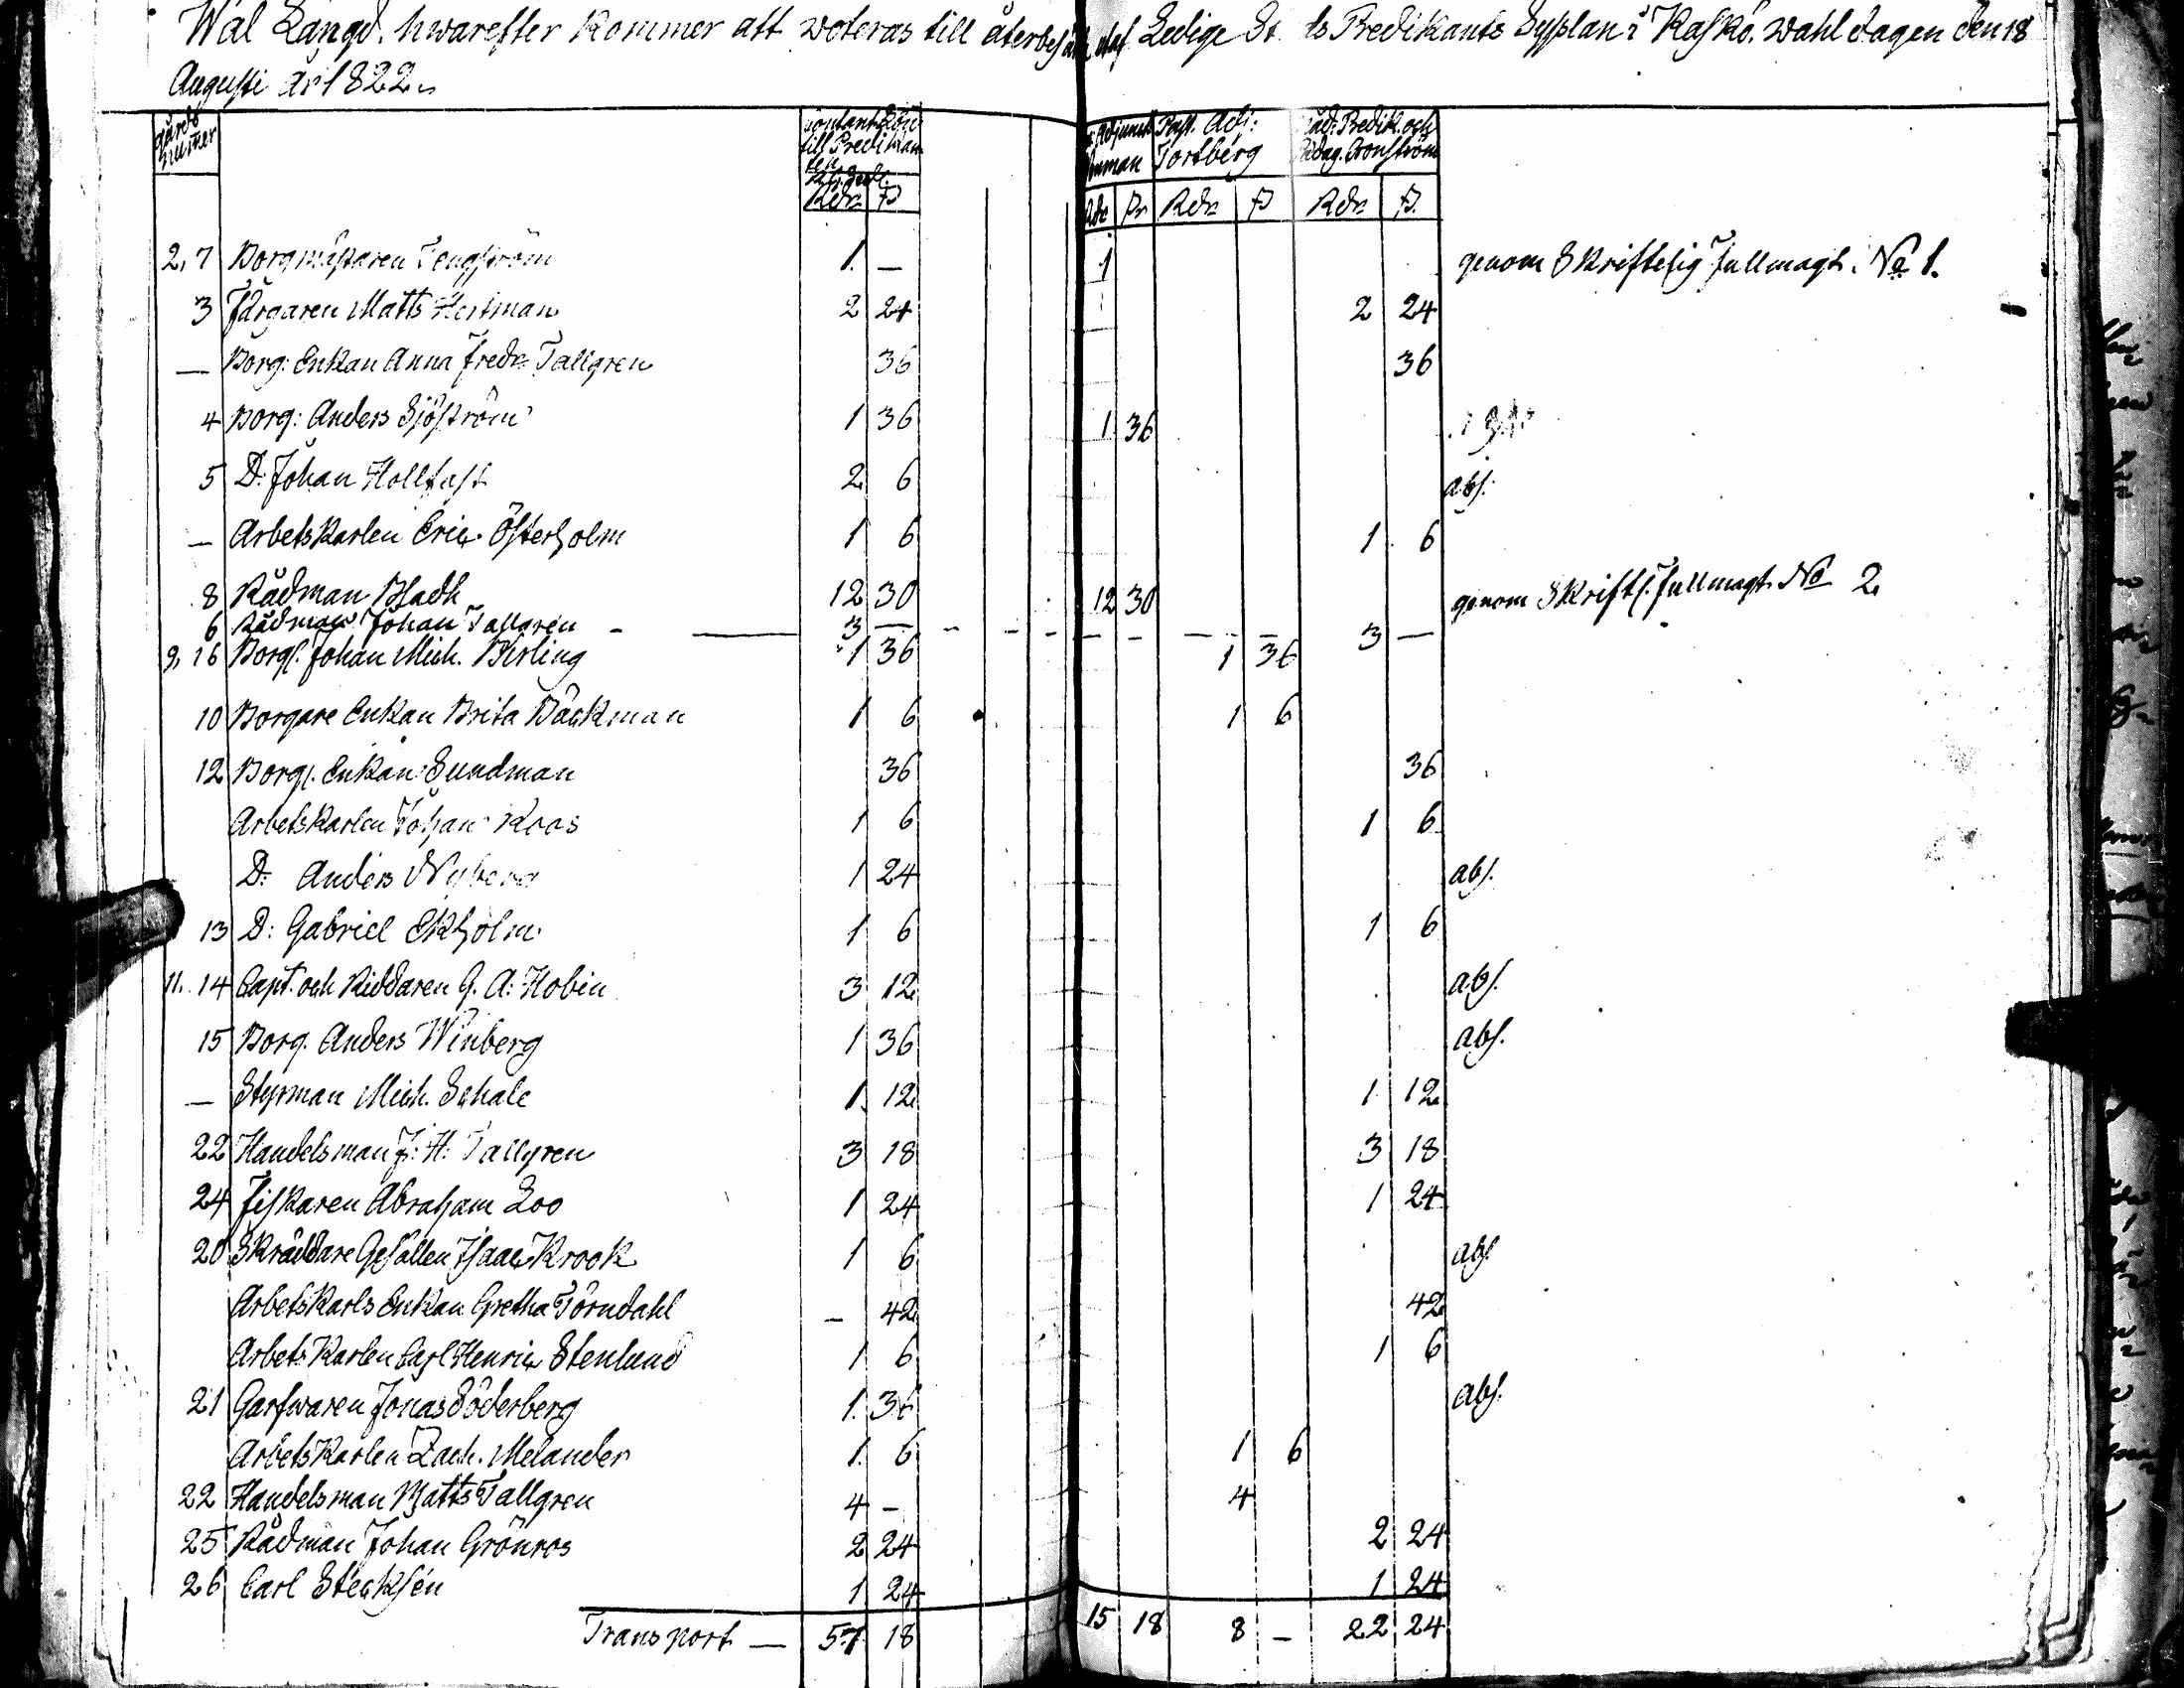 Wal Längd, hwarefter kommer att woteras till återbesättj ledige St ds Predikants Sysslan i Kaskö. Wahl dagen den 18
Augusti år 1822.
Gårds nummer
Contant Lön till Predikan ten
Adjunct Past. Adj: Predik. och
man Torsberg Pedag. Cronström
Rdr P Rdr Pr Rdr P Rdr P.
2, 7 Borgmästaren Tengström 1. — 1 genom Skriftelig Fullmagt. No 1.
3 Färgaren Matts Hertman 2 24 2 24
— Borg: Enkan Anna Fredr Tallgren 36 36
4 Borg: Anders Sjöström 1 36 1 36
5 D: Johan Hollfast 2 6 abs.
— Arbetskarlen Eric Österholm 1 6 1 6
8 Rådman Bladh 12 30 12 30 genom Skriftl. Fullmagt No 2
6 Rådman Johan Tallgren — 3 — 3 —
9, 16 Borg. Johan Mich. Berling 1 36 1 36
10 Borgare Enkan Brita Bäckman 1 6 1 6
12 Borg. Enkan Sundman 36 36
Arbetskarlen Johan Roos 1 6 1 6
D: Anders Nyberg 1 24 abs.
13 D: Gabriel Ekholm 1 6 1 6
11. 14 Capt. och Riddaren G. A. Hobin 3 12 abs.
15 Borg. Anders Winberg 1 36 abs.
— Styrman Mich. Schale 1 12 1 12
22 Handelsman J: H: Tallgren 3 18 3 18
24 Fiskaren Abraham Loo 1 24 1 24
20 Skräddare Gesällen Isaac Krook 1 6 abs
Arbetskarls Enkan Gretha Törndahl — 42 42
Arbets Karlen Carl Henric Stenlund 1 6 1 6
21 Garfwaren Jonas Söderberg 1. 36 abs.
Arbets Karlen Zach. Melander 1. 6 1 6
22 Handelsman Matts Tallgren 4 — 4
25 Rådman Johan Grönros 2 24 2 24
26 Carl Stecksén 1 24 1 24
Transport — 57 18 15 18 8 — 22 24